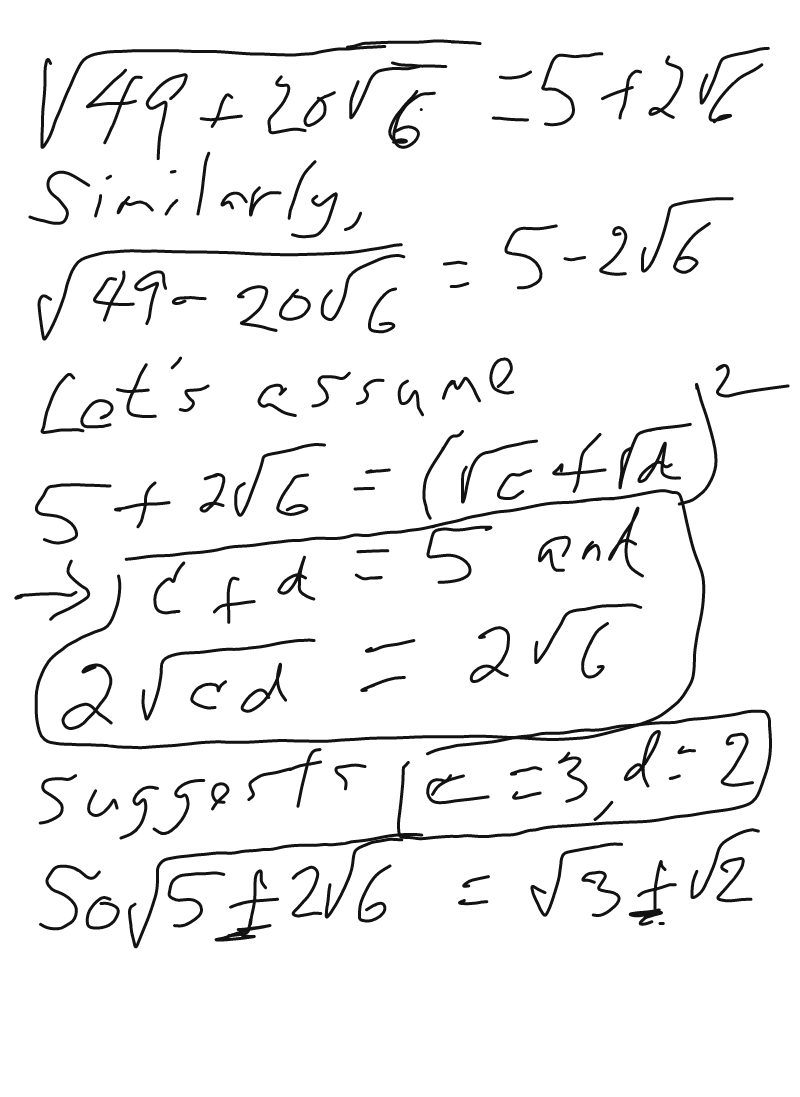 √(49 + 20√6) = 5 + 2√6
Similarly,
√(49 - 20√6) = 5 - 2√6
Let's assume
5 + 2√6 = (√c + √d)²
→ c + d = 5 and
2√cd = 2√6
suggests c = 3, d = 2
So √(5 ± 2√6) = √3 ± √2